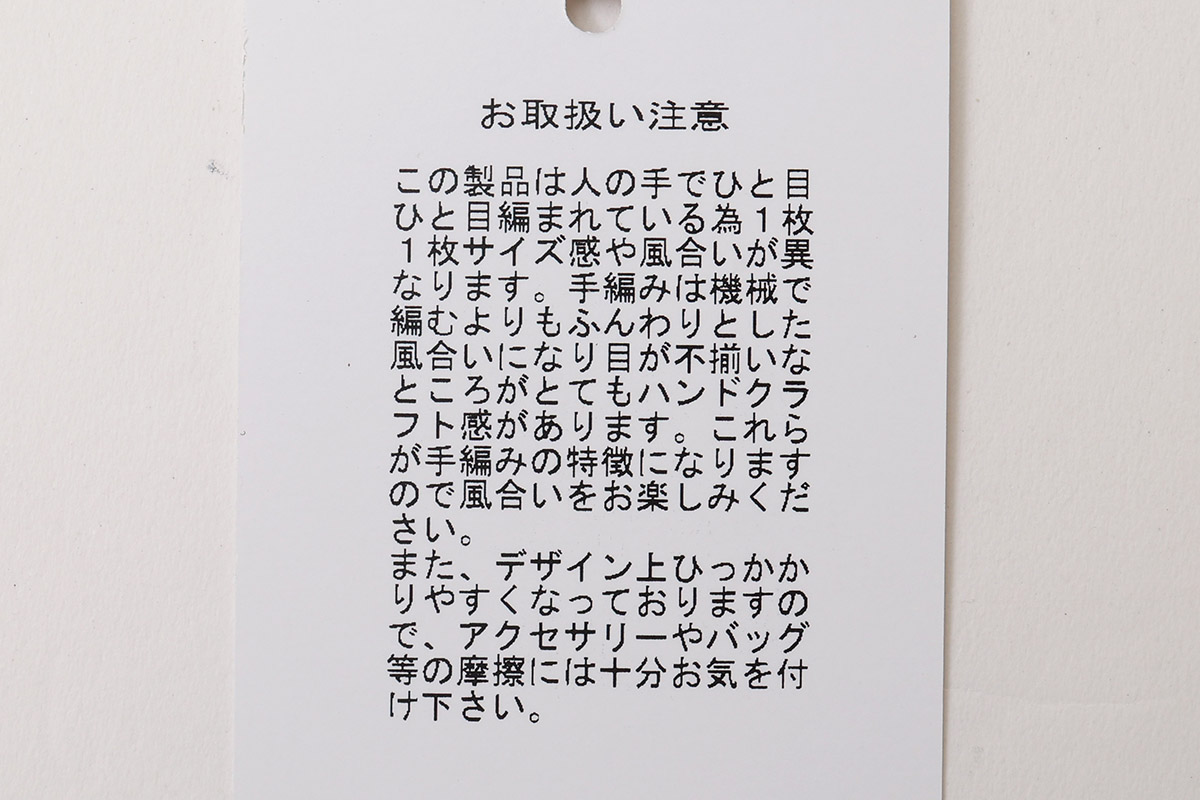 お取扱い注意
この製品は人の手でひと目
ひと目編まれている為１枚
１枚サイズ感や風合いが異
なります。手編みは機械で
編むよりもふんわりとした
風合いになり目が不揃いな
ところがとてもハンドクラ
フト感があります。これら
が手編みの特徴になります
ので風合いをお楽しみくだ
さい。
また、デザイン上ひっかか
りやすくなっておりますの
で、アクセサリーやバッグ
等の摩擦には十分お気を付
け下さい。